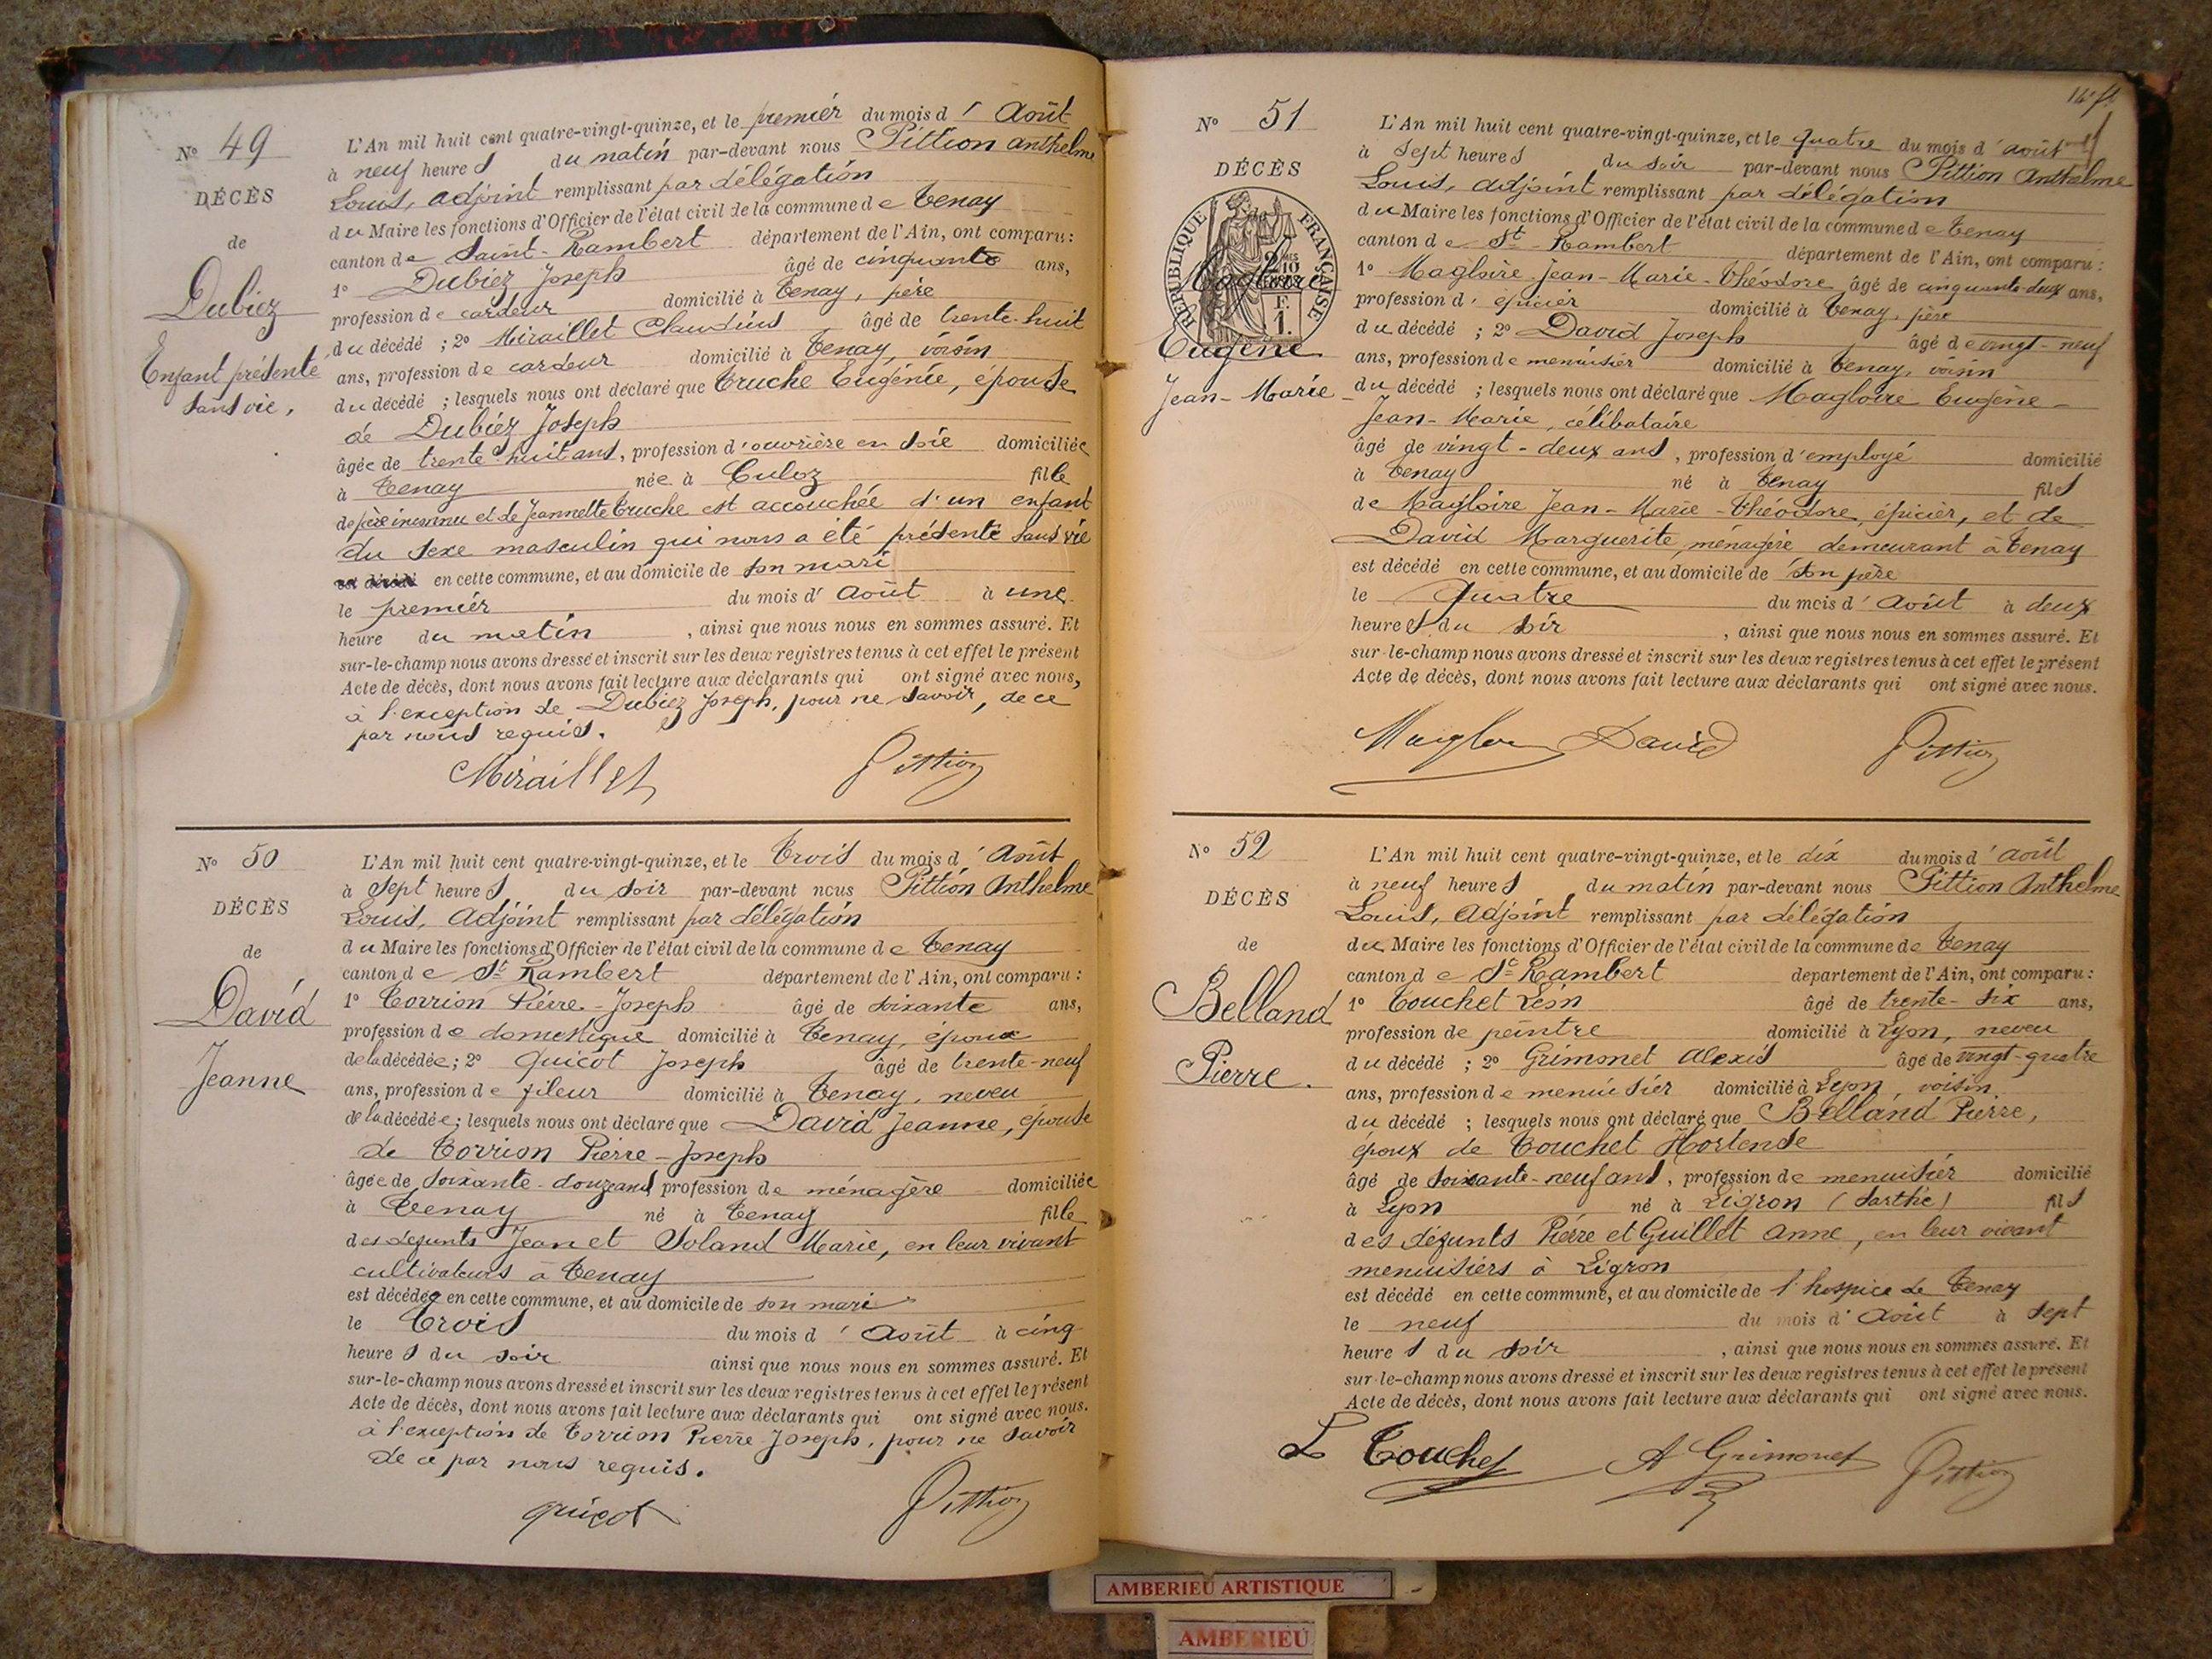 N° 49
DÉCÈS
de
Dubiez
Enfant présenté
sans vie.
L'An mil huit cent quatre-vingt-quinze, et le premier du mois d'Août
à neuf heures du matin par-devant nous Pittion Anthelme
Louis, adjoint remplissant par délégation
du Maire les fonctions d'Officier de l'état civil de la commune de Tenay
canton de Saint-Rambert département de l'Ain, ont comparu :
1° Dubiez Joseph âgé de cinquante ans,
profession de cardeur domicilié à Tenay, père
du décédé ; 2° Miraillet Claudius âgé de trente-huit
ans, profession de cardeur domicilié à Tenay, voisin
du décédé ; lesquels nous ont déclaré que Truche Eugénie, épouse
de Dubiez Joseph
âgée de trente-huit ans, profession d'ouvrière en soie domiciliée
à Tenay née à Culoz fille
de père inconnu et de Jeannette Truche est accouchée d'un enfant
du sexe masculin qui nous a été présenté sans vie
est décédé en cette commune, et au domicile de son mari
le premier du mois d'Août à une
heure du matin, ainsi que nous nous en sommes assuré. Et
sur-le-champ nous avons dressé et inscrit sur les deux registres tenus à cet effet le présent
Acte de décès, dont nous avons fait lecture aux déclarants qui ont signé avec nous,
à l'exception de Dubiez Joseph, pour ne savoir, de ce
par nous requis.
Miraillet Pittion
N° 50
DÉCÈS
de
David
Jeanne
L'An mil huit cent quatre-vingt-quinze, et le Trois du mois d'Août
à sept heures du soir par-devant nous Pittion Anthelme
Louis, Adjoint remplissant par délégation
du Maire les fonctions d'Officier de l'état civil de la commune de Tenay
canton de St Rambert département de l'Ain, ont comparu :
1° Torrion Pierre-Joseph âgé de soixante ans,
profession de domestique domicilié à Tenay, époux
de la décédée ; 2° Quicot Joseph âgé de trente-neuf
ans, profession de fileur domicilié à Tenay, neveu
de la décédée ; lesquels nous ont déclaré que David Jeanne, épouse
de Torrion Pierre-Joseph
âgée de soixante-douze ans, profession de ménagère domiciliée
à Tenay né à Tenay fille
des défunts Jean et Soland Marie, en leur vivant
cultivateurs à Tenay
est décédée en cette commune, et au domicile de son mari
le Trois du mois d'Août à cinq
heures du soir ainsi que nous nous en sommes assuré. Et
sur-le-champ nous avons dressé et inscrit sur les deux registres tenus à cet effet le présent
Acte de décès, dont nous avons fait lecture aux déclarants qui ont signé avec nous.
à l'exception de Torrion Pierre Joseph, pour ne savoir
de ce par nous requis.
quicot Pittion
N° 51
DÉCÈS
de
RÉPUBLIQUE FRANÇAISE
Magloire
Eugène
Jean-Marie
L'An mil huit cent quatre-vingt-quinze, et le quatre du mois d'août
à sept heures du soir par-devant nous Pittion Anthelme
Louis, adjoint remplissant par délégation
du Maire les fonctions d'Officier de l'état civil de la commune de Tenay
canton de St-Rambert département de l'Ain, ont comparu :
1° Magloire Jean-Marie-Théodore, âgé de cinquante-deux ans,
profession d'épicier domicilié à Tenay, père
du décédé ; 2° David Joseph âgé de vingt-neuf
ans, profession de menuisier domicilié à Tenay, voisin
du décédé ; lesquels nous ont déclaré que Magloire Eugène-
Jean-Marie, célibataire
âgé de vingt-deux ans, profession d'employé domicilié
à Tenay né à Tenay fils
de Magloire Jean-Marie-Théodore, épicier, et de
David Marguerite, ménagère demeurant à Tenay
est décédé en cette commune, et au domicile de son père
le Quatre du mois d'Août à deux
heures du soir, ainsi que nous nous en sommes assuré. Et
sur-le-champ nous avons dressé et inscrit sur les deux registres tenus à cet effet le présent
Acte de décès, dont nous avons fait lecture aux déclarants qui ont signé avec nous.
David Pittion
N° 52
DÉCÈS
de
Belland
Pierre.
L'An mil huit cent quatre-vingt-quinze, et le dix du mois d'août
à neuf heures du matin par-devant nous Pittion Anthelme
Louis, Adjoint remplissant par délégation
du Maire les fonctions d'Officier de l'état civil de la commune de Tenay
canton de St Rambert département de l'Ain, ont comparu :
1° Touchet Léon âgé de trente-six ans,
profession de peintre domicilié à Lyon, neveu
du décédé ; 2° Grimonet Alexis âgé de vingt-quatre
ans, profession de menuisier domicilié à Lyon, voisin
du décédé ; lesquels nous ont déclaré que Belland Pierre,
époux de Touchet Hortense
âgé de soixante-neuf ans, profession de menuisier domicilié
à Lyon né à Ligron (Sarthe) fils
des défunts Pierre et Guillet Anne, en leur vivant
menuisiers à Ligron
est décédé en cette commune, et au domicile de l'hospice de Tenay
le neuf du mois d'Août à sept
heures du soir, ainsi que nous nous en sommes assuré. Et
sur-le-champ nous avons dressé et inscrit sur les deux registres tenus à cet effet le présent
Acte de décès, dont nous avons fait lecture aux déclarants qui ont signé avec nous.
L Touchet A Grimonet Pittion
AMBERIEU ARTISTIQUE
AMBERIEU